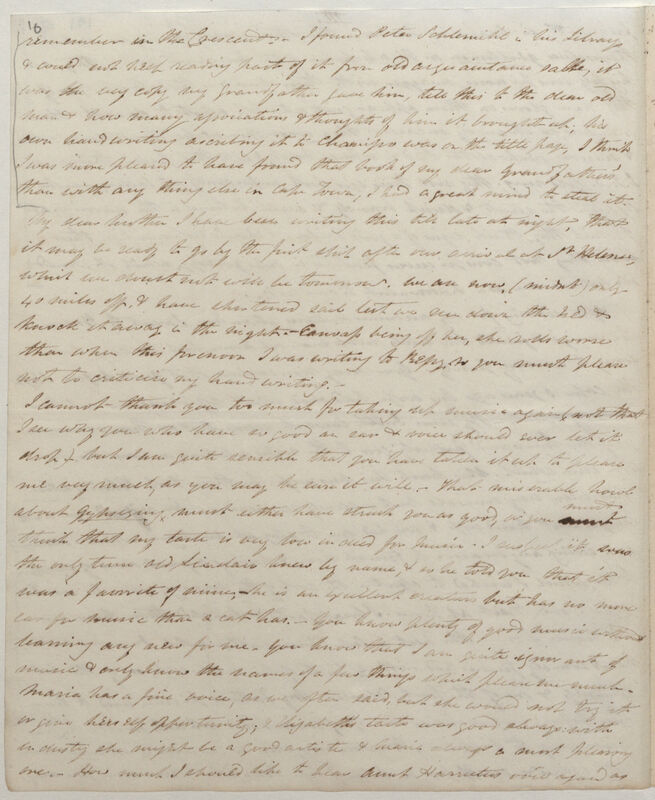 16
remember in the Crescent. - I found Peter Schlemihl in his library
& could not help reading part of it from old acquaintance sake, it
was the very copy my Grandfather gave him, tell this to the dear old
man & how many associations & thoughts of him it brought up. his
own handwriting ascribing it to Chamisso was on the title page, I think
I was more pleased to have found that book of my dear Grandfather's
than with any thing else in Cape Town, I had a great mind to steal it.
My dear mother I have been writing this till late at night, that
it may be ready to go by the first ship after our arrival at St Helena,
which we doubt not will be tomorrow. We are now, (midnt) only
40 miles off, & have shortened sail lest we run down the isd &
knock it away in the night - Canvass being off her, she rolls worse
than when this forenoon I was writing to so you must please
not to criticise my hand writing. -
I cannot thank you too much for taking up music again (not that
I see why you who have so good an ear & voice should ever let it
drop) - but I am quite sensible that you have taken it up to please
me very much, as you may be sure it will. - That miserable howl
about gypsying, must either have struck you as good, or you must
think that my taste is very low indeed for music - I suspect it was
the only tune old Sinclair knew by name, & so he told you that it
was a favorite of mine, - he is an excellent creature but has no more
ear for music than a cat has. - You know plenty of good music without
learning any new for me - you know that I am quite ignorant of
music & only know the names of a few things which please me much -
Maria has a fine voice, as we often said, but she would not try it
or give herself opportunity; Elizabeth's taste was good always: with
industry she might be a good artiste & Maria always a most pleasing
one. - How much I should like to hear Aunt Harriett's voice again as